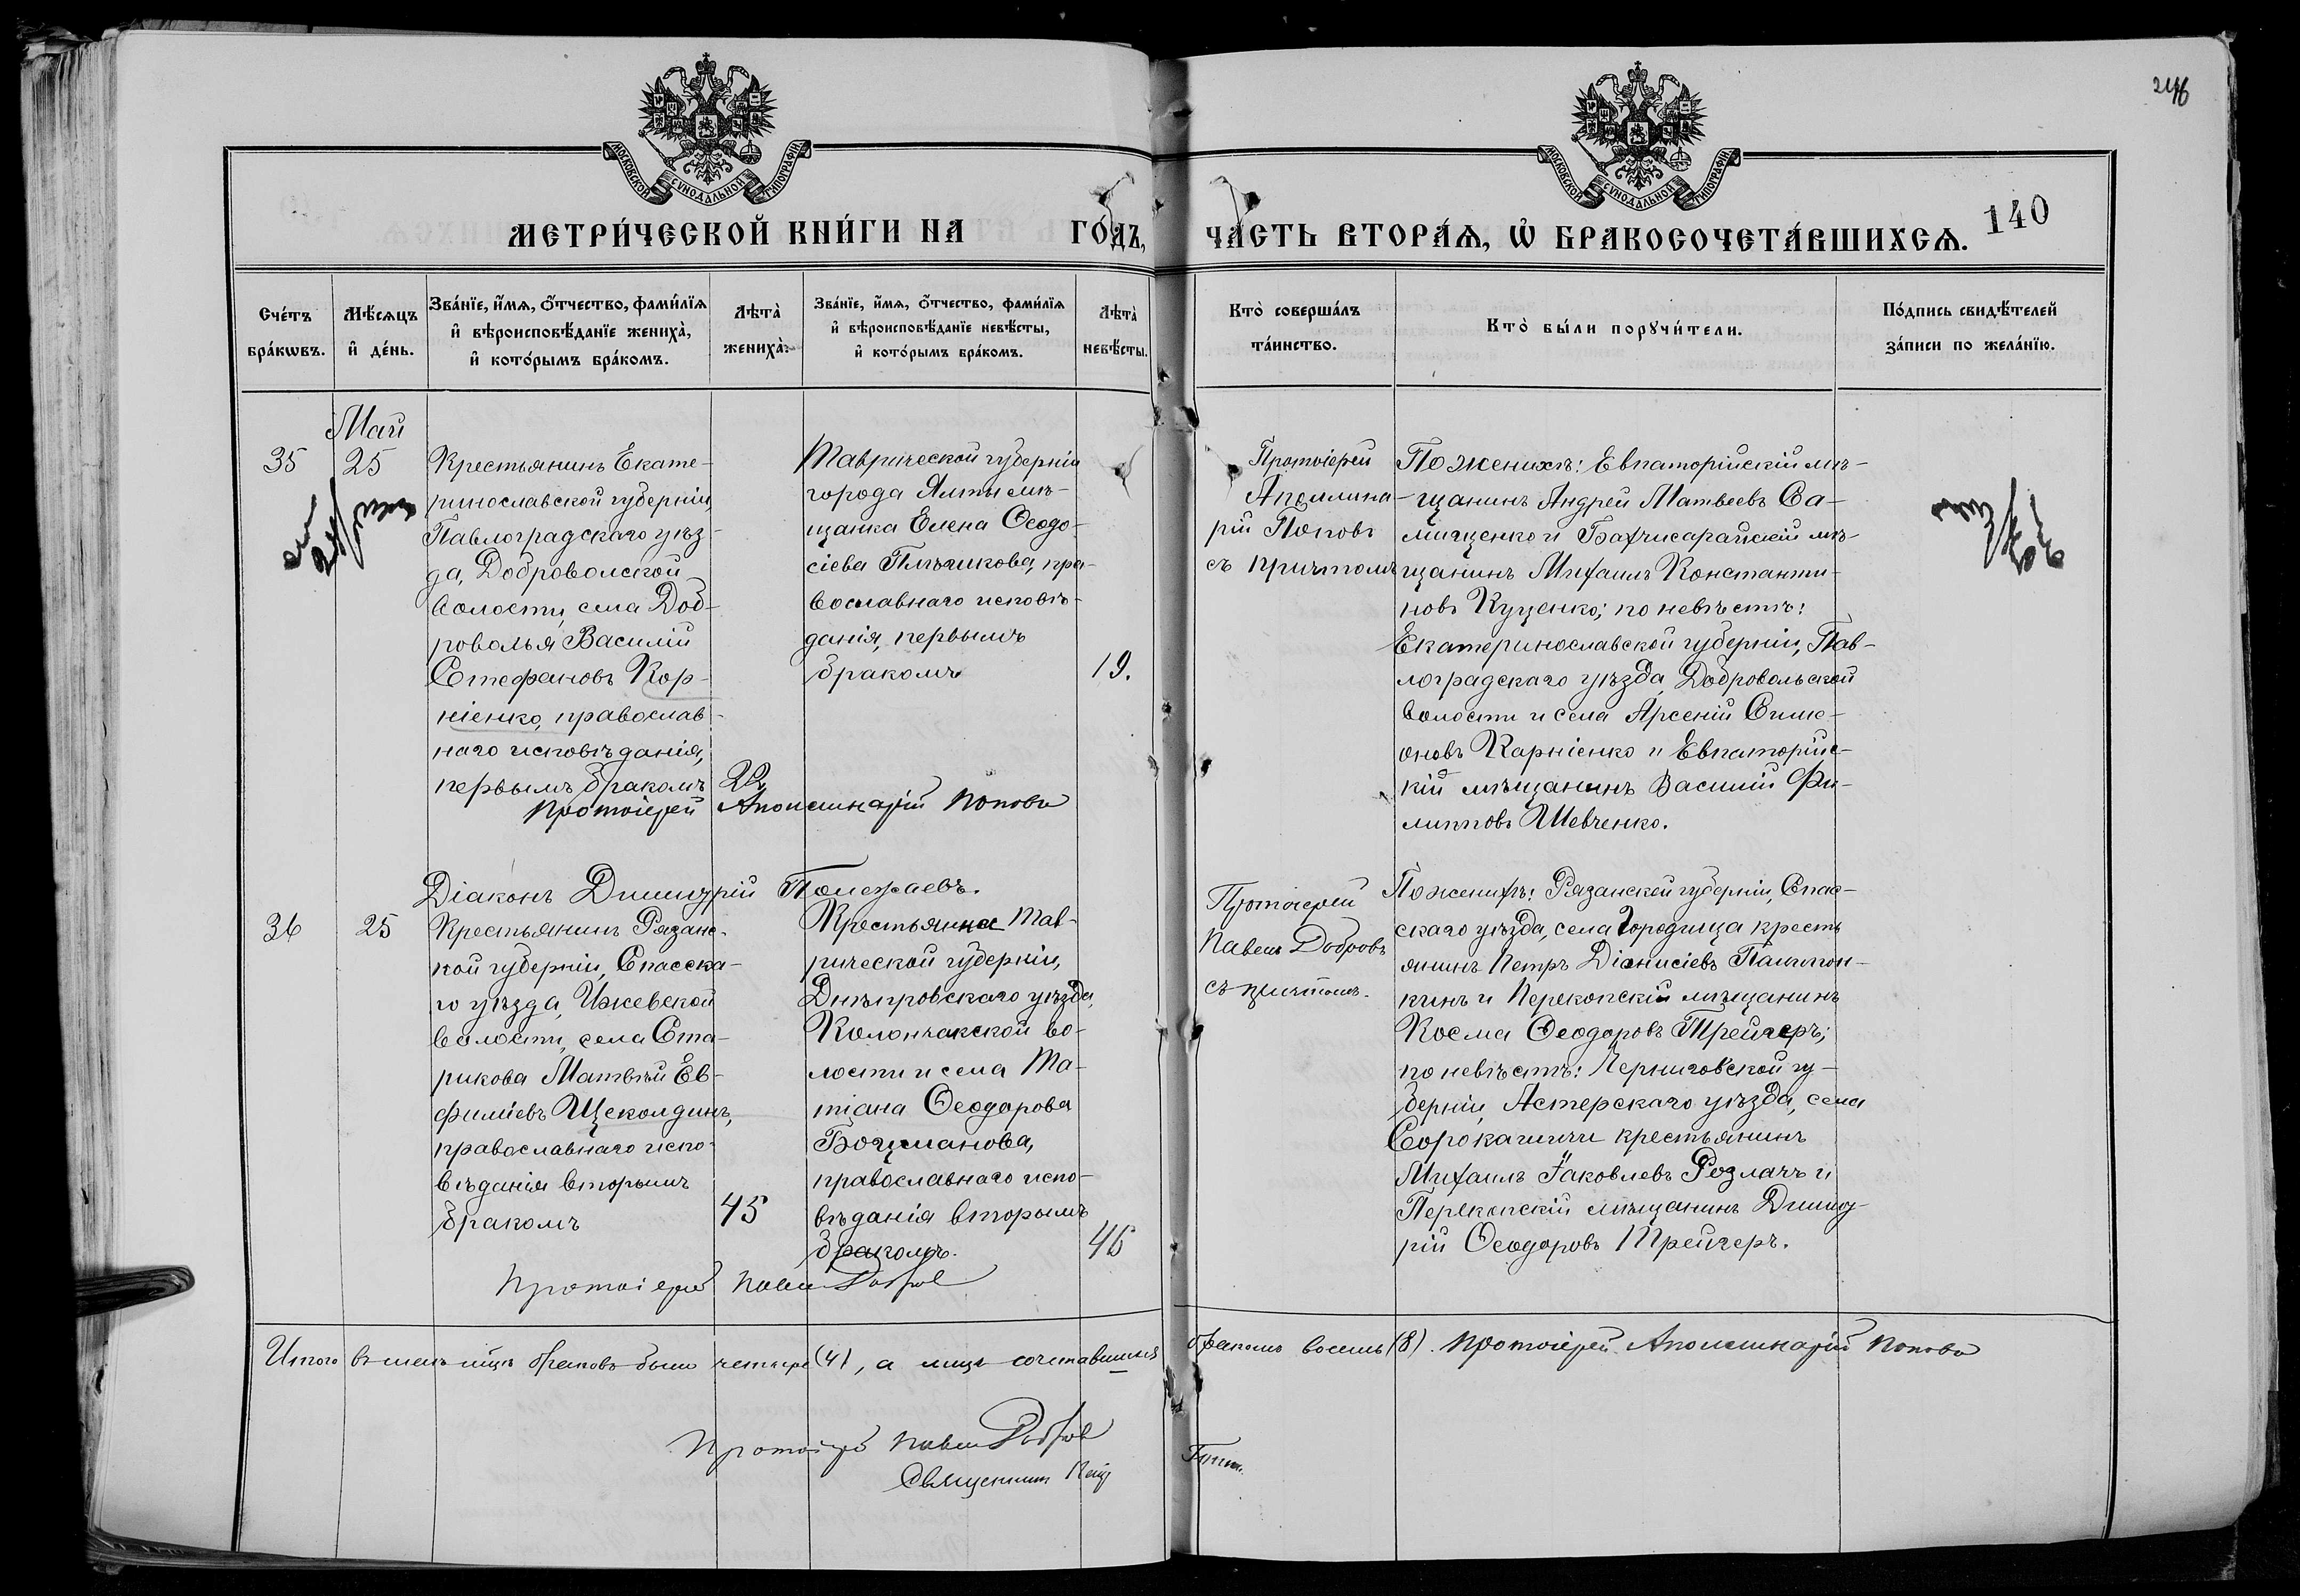 246
МОСКОВСКОЙ СѴНОДАЛЬНОЙ ТИПОГРАФІИ
МОСКОВСКОЙ СѴНОДАЛЬНОЙ ТИПОГРАФІИ
МЕТРИ́ЧЕСКОЙ КНИ́ГИ НА ГО́ДЪ,
ЧА́СТЬ ВТОРА́Ѧ, Ѽ БРАКОСОЧЕТА́ВШИХСѦ.
140
Сче́тъ бра́кωвъ.
Мѣ́сѧцъ и҆ де́нь.
Зва́нїе, и҆́мѧ, ѻ҆́тчество, фами́лїѧ
и҆ вѣроисповѣ́данїе жениха̀,
и҆ кото́рымъ бра́комъ.
Лѣта̀ жениха̀.
Зва́нїе, и҆́мѧ, ѻ҆́тчество, фами́лїѧ
и҆ вѣроисповѣ́данїе невѣ́сты,
и҆ кото́рымъ бра́комъ.
Лѣта̀ невѣ́сты.
Кто̀ соверша́лъ та́инство.
Кто̀ бы́ли порꙋчи́тели.
По́дпись свидѣ́телей
за́писи по жела́нїю.
Май
35
25
Крестьянинъ Екате-
ринославской губерніи,
Павлоградскаго уѣз-
да, Доброволской
волости, села Доб-
роволья Василій
Стефановъ Кор-
ніенко, православ-
наго исповѣданія,
первымъ бракомъ
22
Таврической губерніи
города Ялты мѣ-
щанка Елена Ѳеодо-
сіева Плѣчикова, пра-
вославнаго исповѣ-
данія, первымъ
бракомъ
19.
Протоіерей Аполлинарій Поповъ
Діаконъ Димитрій Полежаевъ.
Протоіерей
Аполлина-
рій Поповъ
съ причтомъ
По женихѣ: Евпаторійскій мѣ-
щанинъ Андрей Матвеевъ Са-
мищенко и Бахчисарайскій мѣ-
щанинъ Михаилъ Константи-
новъ Куценко; по невѣстѣ:
Екатеринославской губерніи, Пав-
лоградскаго уѣзда, Добровольской
волости и села Арсеній Симе-
оновъ Карніенко и Евпаторійс-
кій мѣщанинъ Василій Фи-
липповъ Шевченко.
36
25
Крестьянинъ Рязанс-
кой губерніи, Спасска-
го уѣзда, Ижевской
волости, села Ста-
рикова Матвѣй Ев-
фиміевъ Щеколдинъ,
православнаго испо-
вѣданія вторымъ
бракомъ
45
Крестьянка Тав-
рической губерніи,
Днѣпровскаго уѣзда,
Колончакской во-
лости и села Та-
тіана Ѳеодорова
Боцманова,
православнаго испо-
вѣданія вторымъ
бракомъ.
46
Протоіерей Павелъ Добровъ
Протоіерей
Павелъ Добровъ
съ причтомъ.
По женихѣ: Рязанской губерніи, Спас-
скаго уѣзда, села Городища кресть
янинъ Петръ Діонисіевъ
кинъ и Перекопскій мѣщанинъ
Косма Ѳеодоровъ Трейгеръ;
по невѣстѣ: Черниговской гу-
берніи, Астерскаго уѣзда, села
Сорокашичи крестьянинъ
Михаилъ Іаковлевъ Розлачъ и
Перекопскій мѣщанинъ Димит-
рій Ѳеодоровъ Трейгеръ.
Итого въ маѣ мцѣ браковъ было четыре (4), а лицъ сочетавшихся бракомъ восемь (8). Протоіерей Аполлинарій Поповъ
Протоіерей Павелъ Добровъ
Священникъ